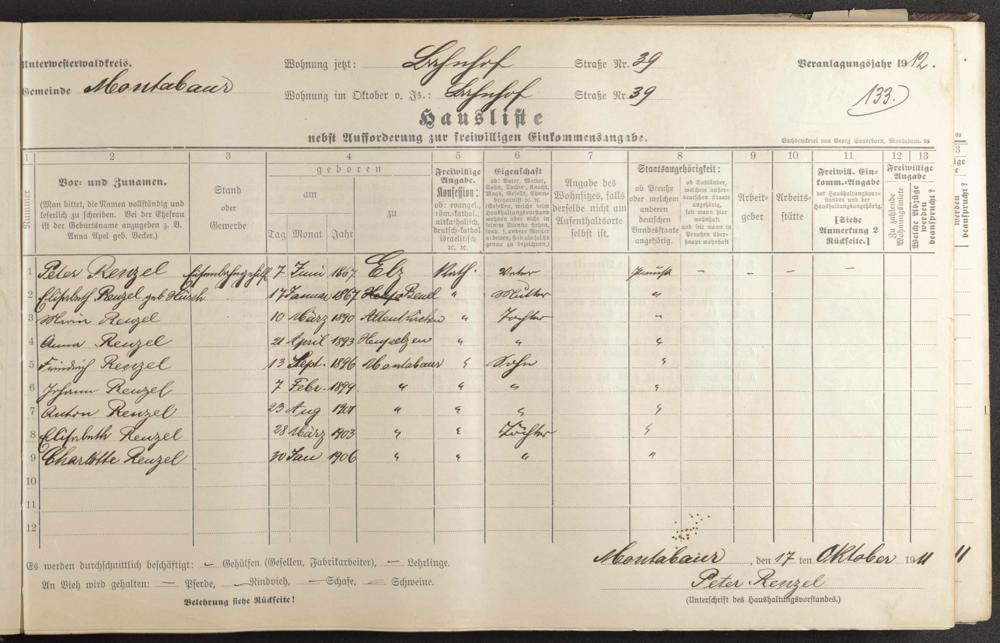 Unterwesterwaldkreis.
Gemeinde Montabaur
Wohnung jetzt: Bahnhof Straße Nr. 39
Wohnung im Oktober v. Js.: Bahnhof Straße Nr. 39
Veranlagungsjahr 1912.
133.
Hausliste
nebst Aufforderung zur freiwilligen Einkommensangabe.
Buchdruckerei von Georg Sauerborn, Montabaur.
1 2 3 4 5 6 7 8 9 10 11 12 13
Nummer
Vor- und Zunamen.
(Man bittet, die Namen vollständig und
leserlich zu schreiben. Bei der Ehefrau
ist der Geburtsname anzugeben z. B.
Anna Apel geb. Becker.)
Stand
oder
Gewerbe
geboren
am
zu
Tag Monat Jahr
Freiwillige
Angabe.
Konfession:
ob: evangel.,
röm.-kathol.,
altkatholisch,
deutsch-kathol.
israelitisch
ꝛc. ꝛc.
Eigenschaft
ob: Vater, Mutter,
Sohn, Tochter, Knecht,
Magd, Geselle,
Angabe des
Wohnsitzes, falls
derselbe nicht am
Aufenthaltsorte
selbst ist.
Staatsangehörigkeit:
ob Preuße
oder welchem
anderen
deutschen
Bundesstaate
angehörig.
ob Ausländer,
welchem außer-
deutschen Staate
angehörig,
seit wann hier
wohnhaft
und seit wann in
Preußen über-
haupt wohnhaft
Arbeit-
geber
Arbeits-
stätte
Freiwill. Ein-
komm.-Angabe
der Haushaltungsvor-
standes und der
Haushaltungsangehör.
[Siehe
Anmerkung 2
Rückseite.]
Freiwillige
Angabe
Zu zahlende
Wohnungsmiete
Welche Abzüge
werden
beansprucht?
1 Peter Renzel Eisenbahngehilf 7 Juni 1867 Elz Kath. Vater Preuße – – – –
2 Elisabeth Renzel geb 17 Januar 1867 " Mutter "
3 Maria Renzel 10 März 1890 Altenkirchen " Tochter "
4 Anna Renzel 21 April 1893 " " "
5 Friedrich Renzel 13 Sept. 1896 Montabaur " Sohn "
6 Johann Renzel 7 Febr. 1899 " " " "
7 Anton Renzel 23 Aug 1901 " " " "
8 Elisabeth Renzel 28 März 1903 " " Töchter "
9 Charlotte Renzel 30 Jan 1906 " " " "
10
11
12
Es werden durchschnittlich beschäftigt: – Gehülfen (Gesellen, Fabrikarbeiter), – Lehrlinge.
An Vieh wird gehalten: – Pferde, – Rindvieh, – Schafe, – Schweine.
Belehrung siehe Rückseite!
Montabaur, den 17 ten Oktober 1911
Peter Renzel
(Unterschrift des Haushaltungsvorstandes.)